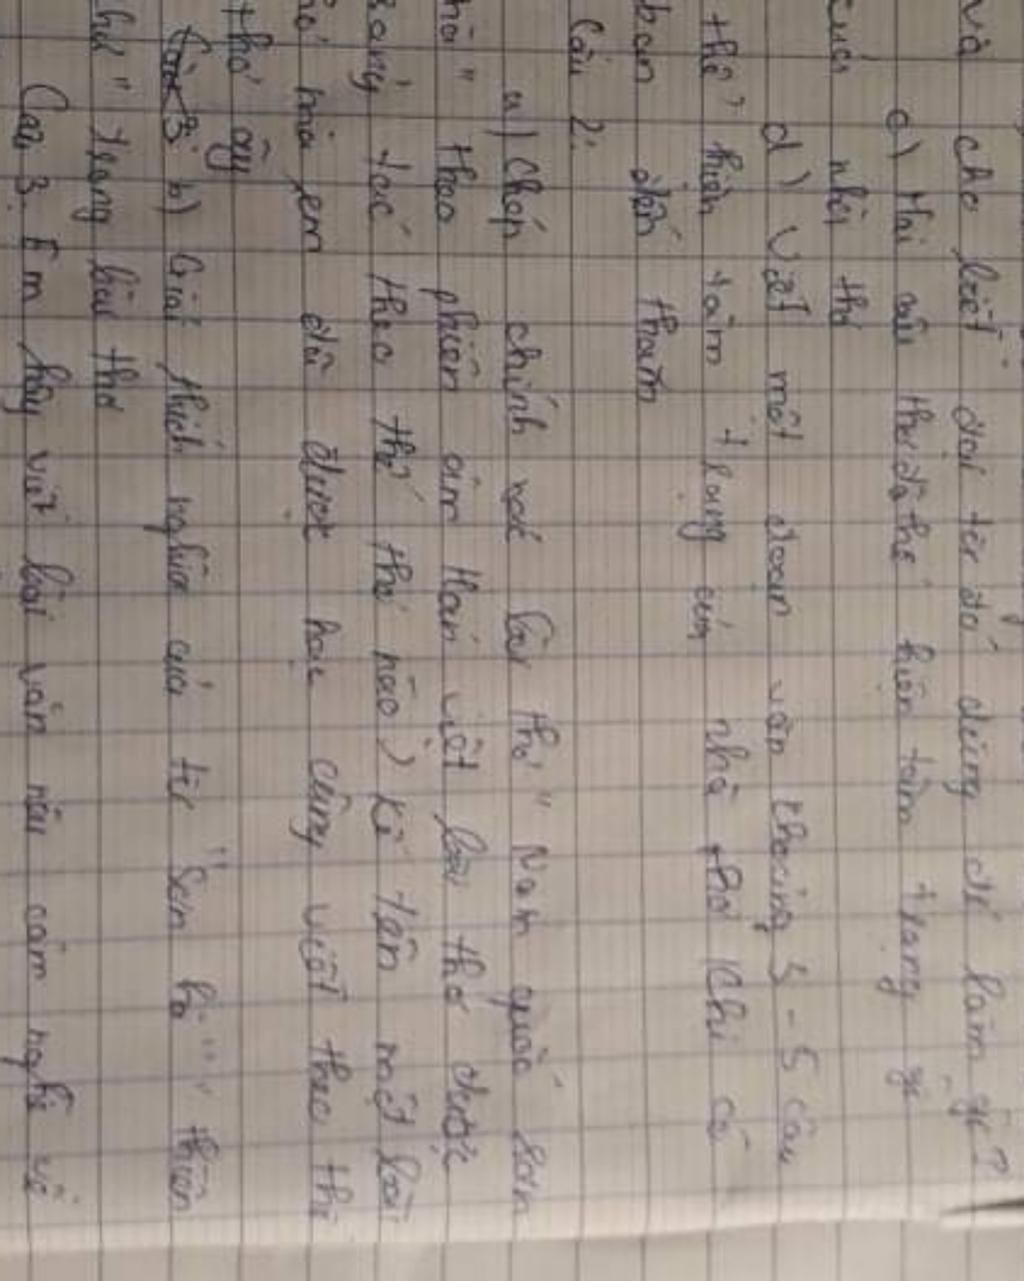 và cho biết đại từ đó dùng để làm gì?
c) Hai câu thơ đã thể hiện tâm trạng gì
của nhà thơ
d) Viết một đoạn văn khoảng 3-5 câu
thể hiện tâm trạng của nhà thơ khi có
bạn đến thăm
Câu 2:
a) Chép chính xác bài thơ "Nam quốc sơn
hà" theo phiên âm Hán việt bài thơ được
sáng tác theo thể thơ nào? Kể tên một bài
thơ mà em đã được học cũng viết theo thể
thơ ấy
b) Giải thích nghĩa của từ "Sơn hà", thiên
thư" trong bài thơ
Câu 3. Em hãy viết bài văn nêu cảm nghĩ về